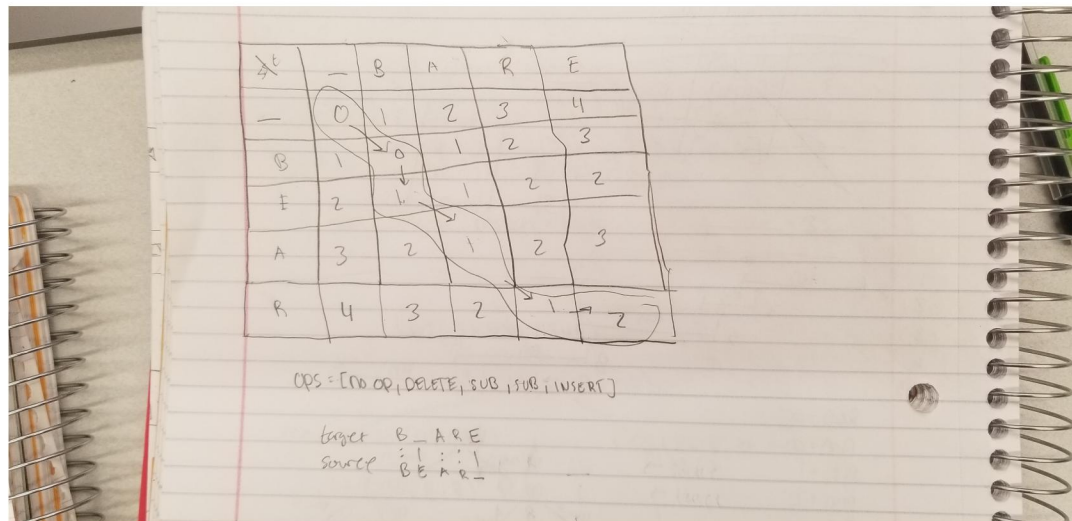 t _ B A R E
_ 0 1 2 3 4
B 1 0 1 2 3
E 2 1 1 2 2
A 3 2 1 2 3
R 4 3 2 1 2
OPS = [NO OP, DELETE, SUB, SUB, INSERT]
target B _ A R E
source B E A R _